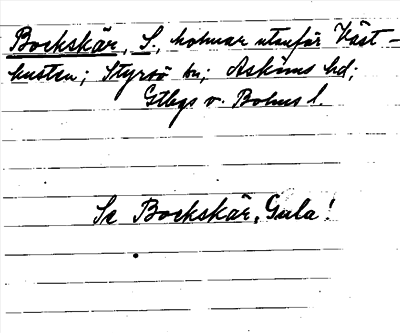 Bockskär, S., holmar utanför Väst-
kusten; Styrsö sn; Askims hd;
Gtbgs o. Bohus l.
Se Bockskär, Gula!